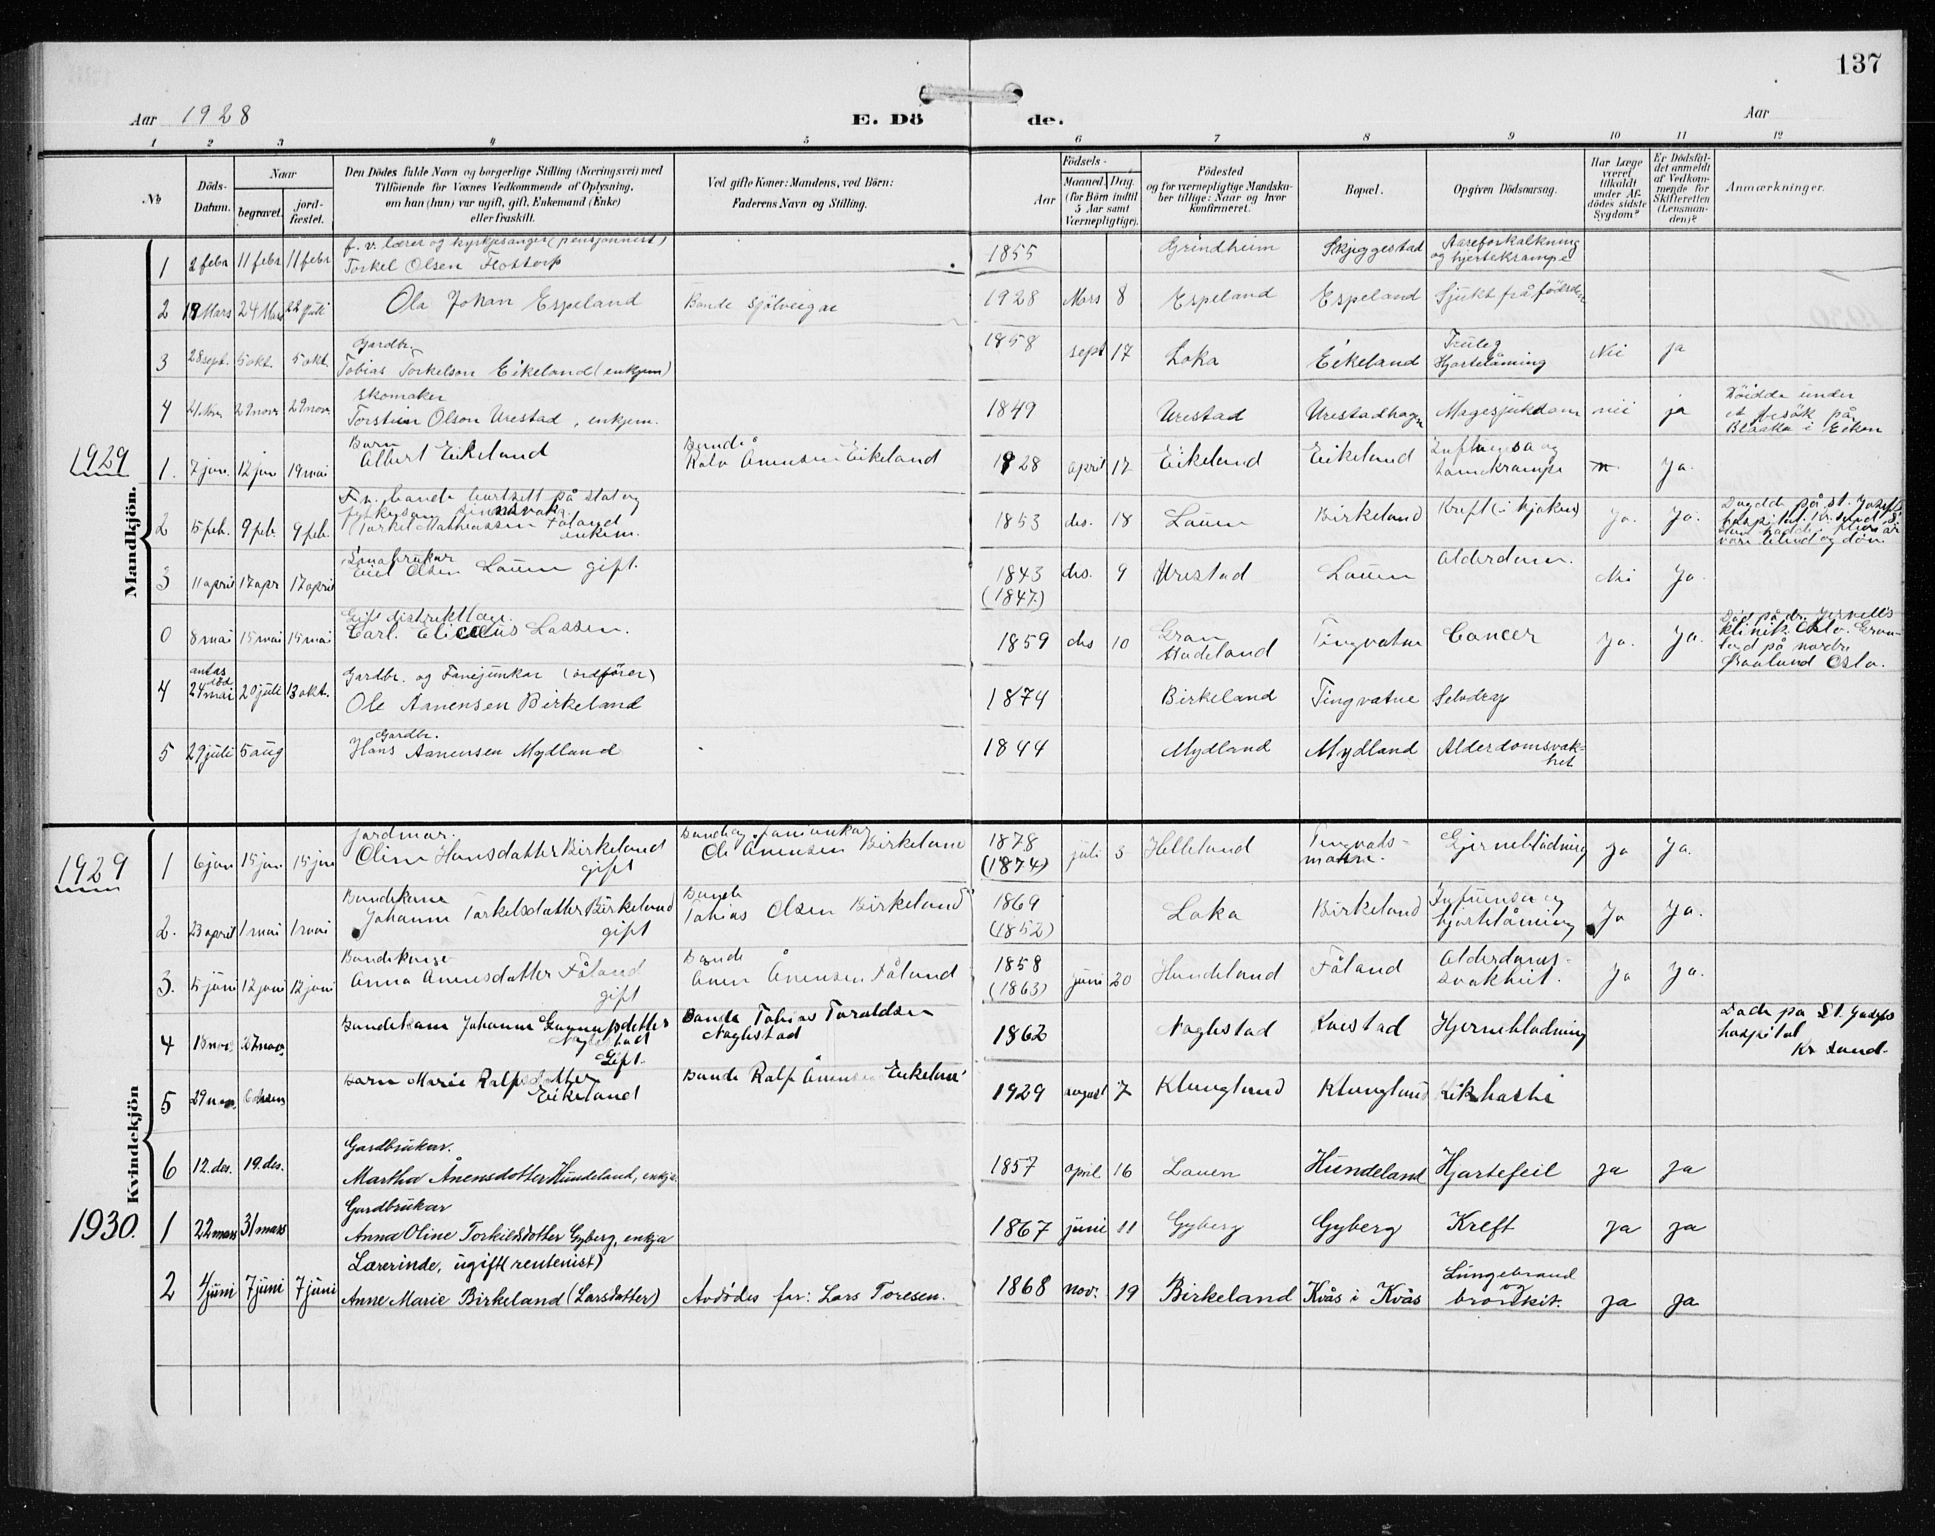 137
Aar 1928
E. Dö de.
Aar
1 2 3 4 5 6 7 8 9 10 11 12
No
Döds-Datum.
Naar
begravet.
jordfæstet.
Den Dödes fulde Navn og borgerlige Stilling (Næringsvei) med
Tilföiende for Voxnes Vedkommende af Oplysning,
om han (hun) var ugift, gift, Enkemand (Enke)
eller fraskilt.
Ved gifte Koner: Mandens, ved Börn:
Faderens Navn og Stilling.
Födsels-
Aar
Maaned. Dag.
(for Börn indtil
5 Aar samt
Værnepligtige).
Födested
og for værnepligtige Mandskaber tillige: Naar og hvor
konfirmeret.
Bopæl.
Opgiven Dödsaarsag.
Har Læge
været
tilkaldt
under Afdödes sidste
Sygdom?
Er Dödsfaldet anmeldt
af Vedkommende for
Skifteretten
(Lensmanden)?
Anmærkninger.
Mandkjön.
f. v. lærer og kyrkjesanger (pensjonnist)
1 2 febr 11 febr 11 febr Torkel Olsen Flottorp 1855 Grindheim Skjeggestad Aareforkalkning og hjertekrampe
2 18 Mars 24 Mars 22 juli Ola Johan Espeland Bonde Sjølveigar 1928 Mars 8 Espeland Espeland Sjukt frå fødselen
Gardbr.
3 28 sept. 5 okt. 5 okt. Tobias Torkelson Eikeland (enkjem) 1858 sept 17 Loka Eikeland Hjartelåming Nei ja
skomaker
4 29 nov 29 nov. Olson Urestad, enkjem. 1849 Urestad Urestadhagen Magesjukdom nei ja under et besök på i Eiken
1929
Barn
1. 7 jan. 12 jan 19 mai Albert Eikeland Bonde Ånensen Eikeland 1928 april 17 Eikeland Eikeland og Ja.
2 5 feb. 9 feb. 9 feb. på stat og Torkel Mathiassen Fåland enkem. 1853 des. 18 Lauen Birkeland Kreft Ja. Ja. på St. Josefs blind og døv
Småbrukar
3 11 april 17 apr 17 april Olsen Lauen gift. 1843 (1847.) des. 9 Urestad Lauen Alderdom. Nei Ja.
Gift distriktlæge.
0 8 mai 15 mai 15 mai Carl Lassen. 1859 des 10 Gran Hadeland Tingvatne Cancer Ja. Ja. Död på dr. klinik Oslo. på nordre Oslo.
Gardbr. og Fanejunkar (ordförer)
4 antas död 24 mai 20 juli 13 okt. Ole Aanensen Birkeland 1874 Birkeland Tingvatne Selvdrap
Gardbr.
5 29 juli 5 aug Hans Aanensen Mydland 1844 Mydland Mydland Alderdomsvakhet
Kvindekjön
1929
Jordmor.
1 6 jan 15 jan 15 jan Oline Hansdatter Birkeland gift Bonde og fanejunkar Ole Ånensen Birkeland 1878 (1874) juli 3 Helleland Tingvatsmoen. Hjerneblødning Ja Ja.
Bondekone
2. 23 april 1 mai 1 mai Johanne Torkelsdatter Birkeland gift Bonde Tobias Olsen Birkeland 1869 (1852) Loka Birkeland Influensa og hjartelåming Ja Ja.
Bondekone
3. 5 juni 12 juni 12 juni Anna Anensdatter Fåland gift Bonde Anen Ånensen Fåland 1858 (1863) juni 20 Hundeland Fåland Alderdomssvakheit. Ja Ja.
4 18 nov. 27 nov. Bondekone Johanne Gunnufsdatter Naglestad Gift. Bonde Tobias Taraldsen Naglestad 1862 Naglestad Kvestad Hjerneblødning Døde på St. Josefs hospital Kr sand.
5 29 nov. 6 desem Barn Marie Ralfsdatter Eikeland Bonde Ralf Ånensen Eikeland 1929 august 7 Klungland Klungland Kikhoste
Gardbrukar.
6 12. des. 19. des. Martha Ånensdotter Hundeland, enkja. 1857 april 16 Lauen Hundeland Hjartefeil ja ja
1930.
Gardbrukar
1 22 mars 31 mars Anna Oline Torkildsdotter Gyberg, enkja 1867 juni 11 Gyberg Gyberg Kreft ja ja
Lærerinde, ugift (rentenist)
2 4 juni 7 juni 7 juni Anne Marie Birkeland (Larsdotter) Avdødes far: Lars Toresen. 1868 nov. 19 Birkeland Kvås i Kvås Lungebrand og bronkit. ja ja